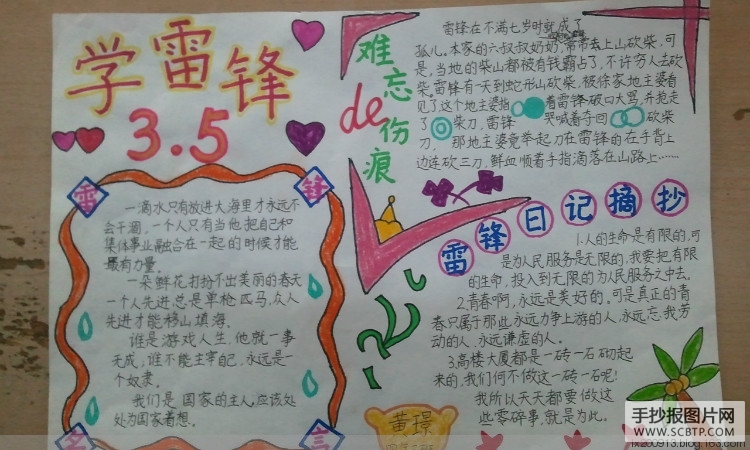 学雷锋
3.5
雷
锋
一滴水只有放进大海里才永远不
会干涸,一个人只有当他把自己和
集体事业融合在一起的时候才能
最有力量。
一朵鲜花打扮不出美丽的春天
一个人先进总是单枪匹马,众人
先进才能移山填海。
谁是游戏人生,他就一事
无成,谁不能主宰自己,永远是一
个奴隶。
我们是国家的主人,应该处
处为国家着想。
名
言
难忘de伤痕
雷锋在不满七岁时就成了
孤儿。本家的六叔叔奶奶,常常去上山砍柴,可
是,当地的柴山都被有钱霸占了,不许穷人去砍
柴。雷锋有一天到蛇形山砍柴,被徐家地主婆看
见了这个地主婆指 着雷锋破口大骂,并抢走
了 柴刀,雷锋 哭喊着夺回 砍柴
刀,那地主婆竟举起刀在雷锋的在手背上
边连砍三刀,鲜血顺着手指滴落在山路上……
雷锋日记摘抄
1.人的生命是有限的,可
是为人民服务是无限的,我要把有限
的生命,投入到无限的为人民服务之中去。
2.青春啊,永远是美好的,可是真正的青
春只属于那些永远力争上游的人,永远忘我劳
动的人,永远谦虚的人。
3.高楼大厦都是一砖一石砌起
来的,我们何不做这一砖一石呢!
我所以天天都要做这
些零碎事,就是为此。
黄璟
手抄报图片网
WWW.SCBTP.COM
fx200913.blog.163.com